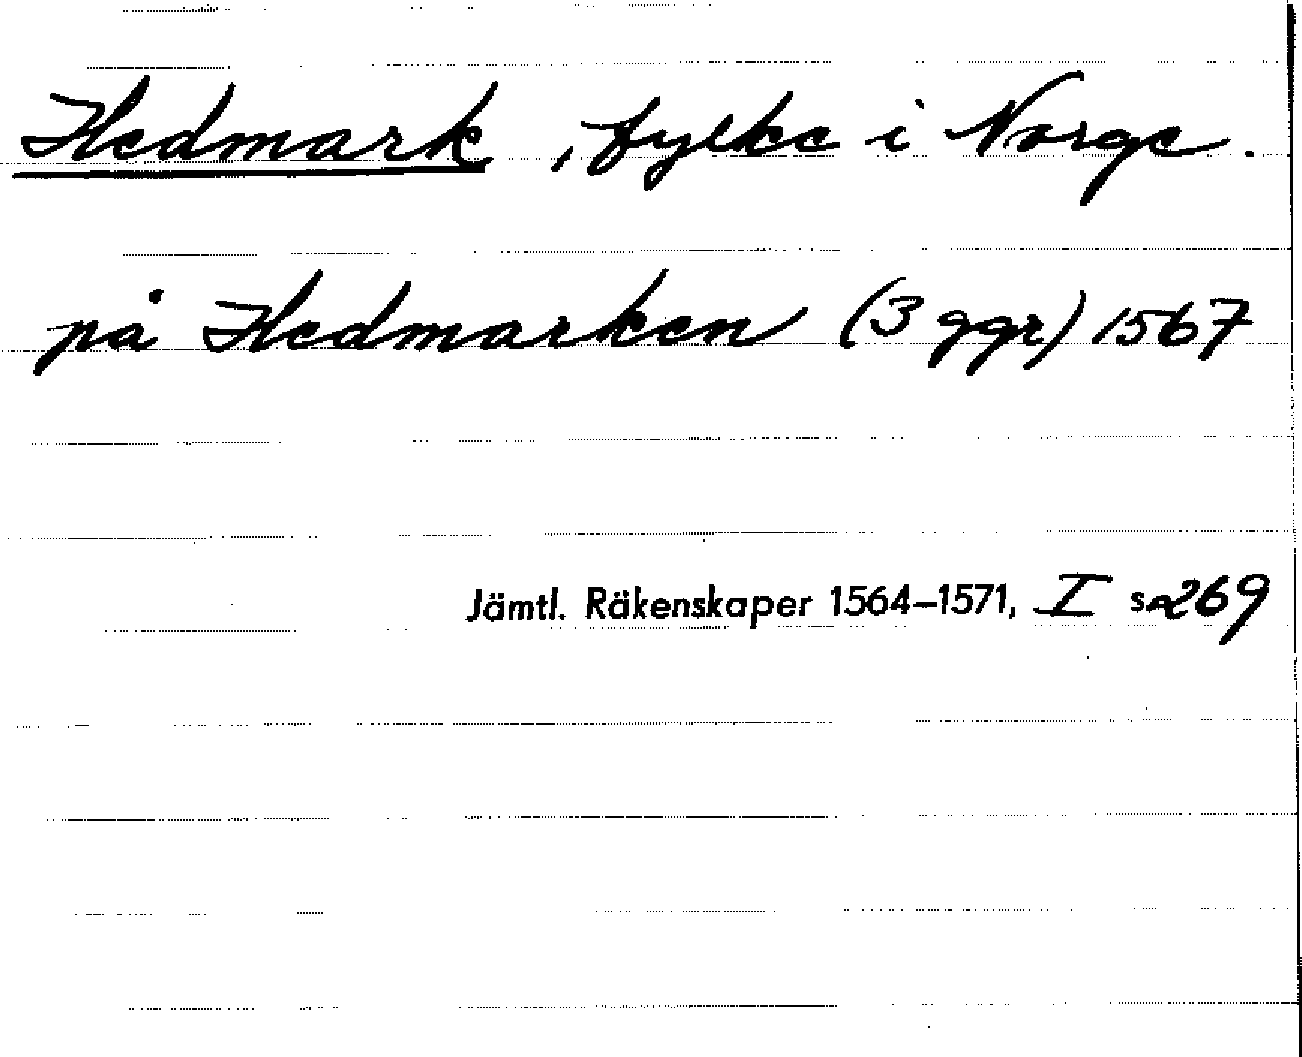 Hedmark, fylke i Norge.
på Hedmarken (3 ggr) 1567
Jämtl. Räkenskaper 1564–1571, I s. 269